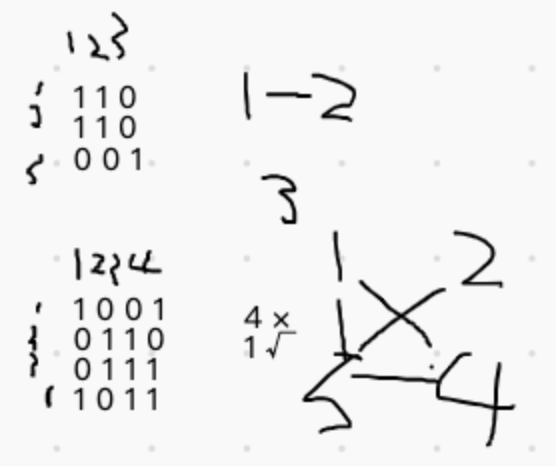 1 2 3
1 1 0
1 1 0
0 0 1
1 - 2
3
1 2 3 4
1 0 0 1
0 1 1 0
0 1 1 1
1 0 1 1
4 ×
1 √
1 2
3 4